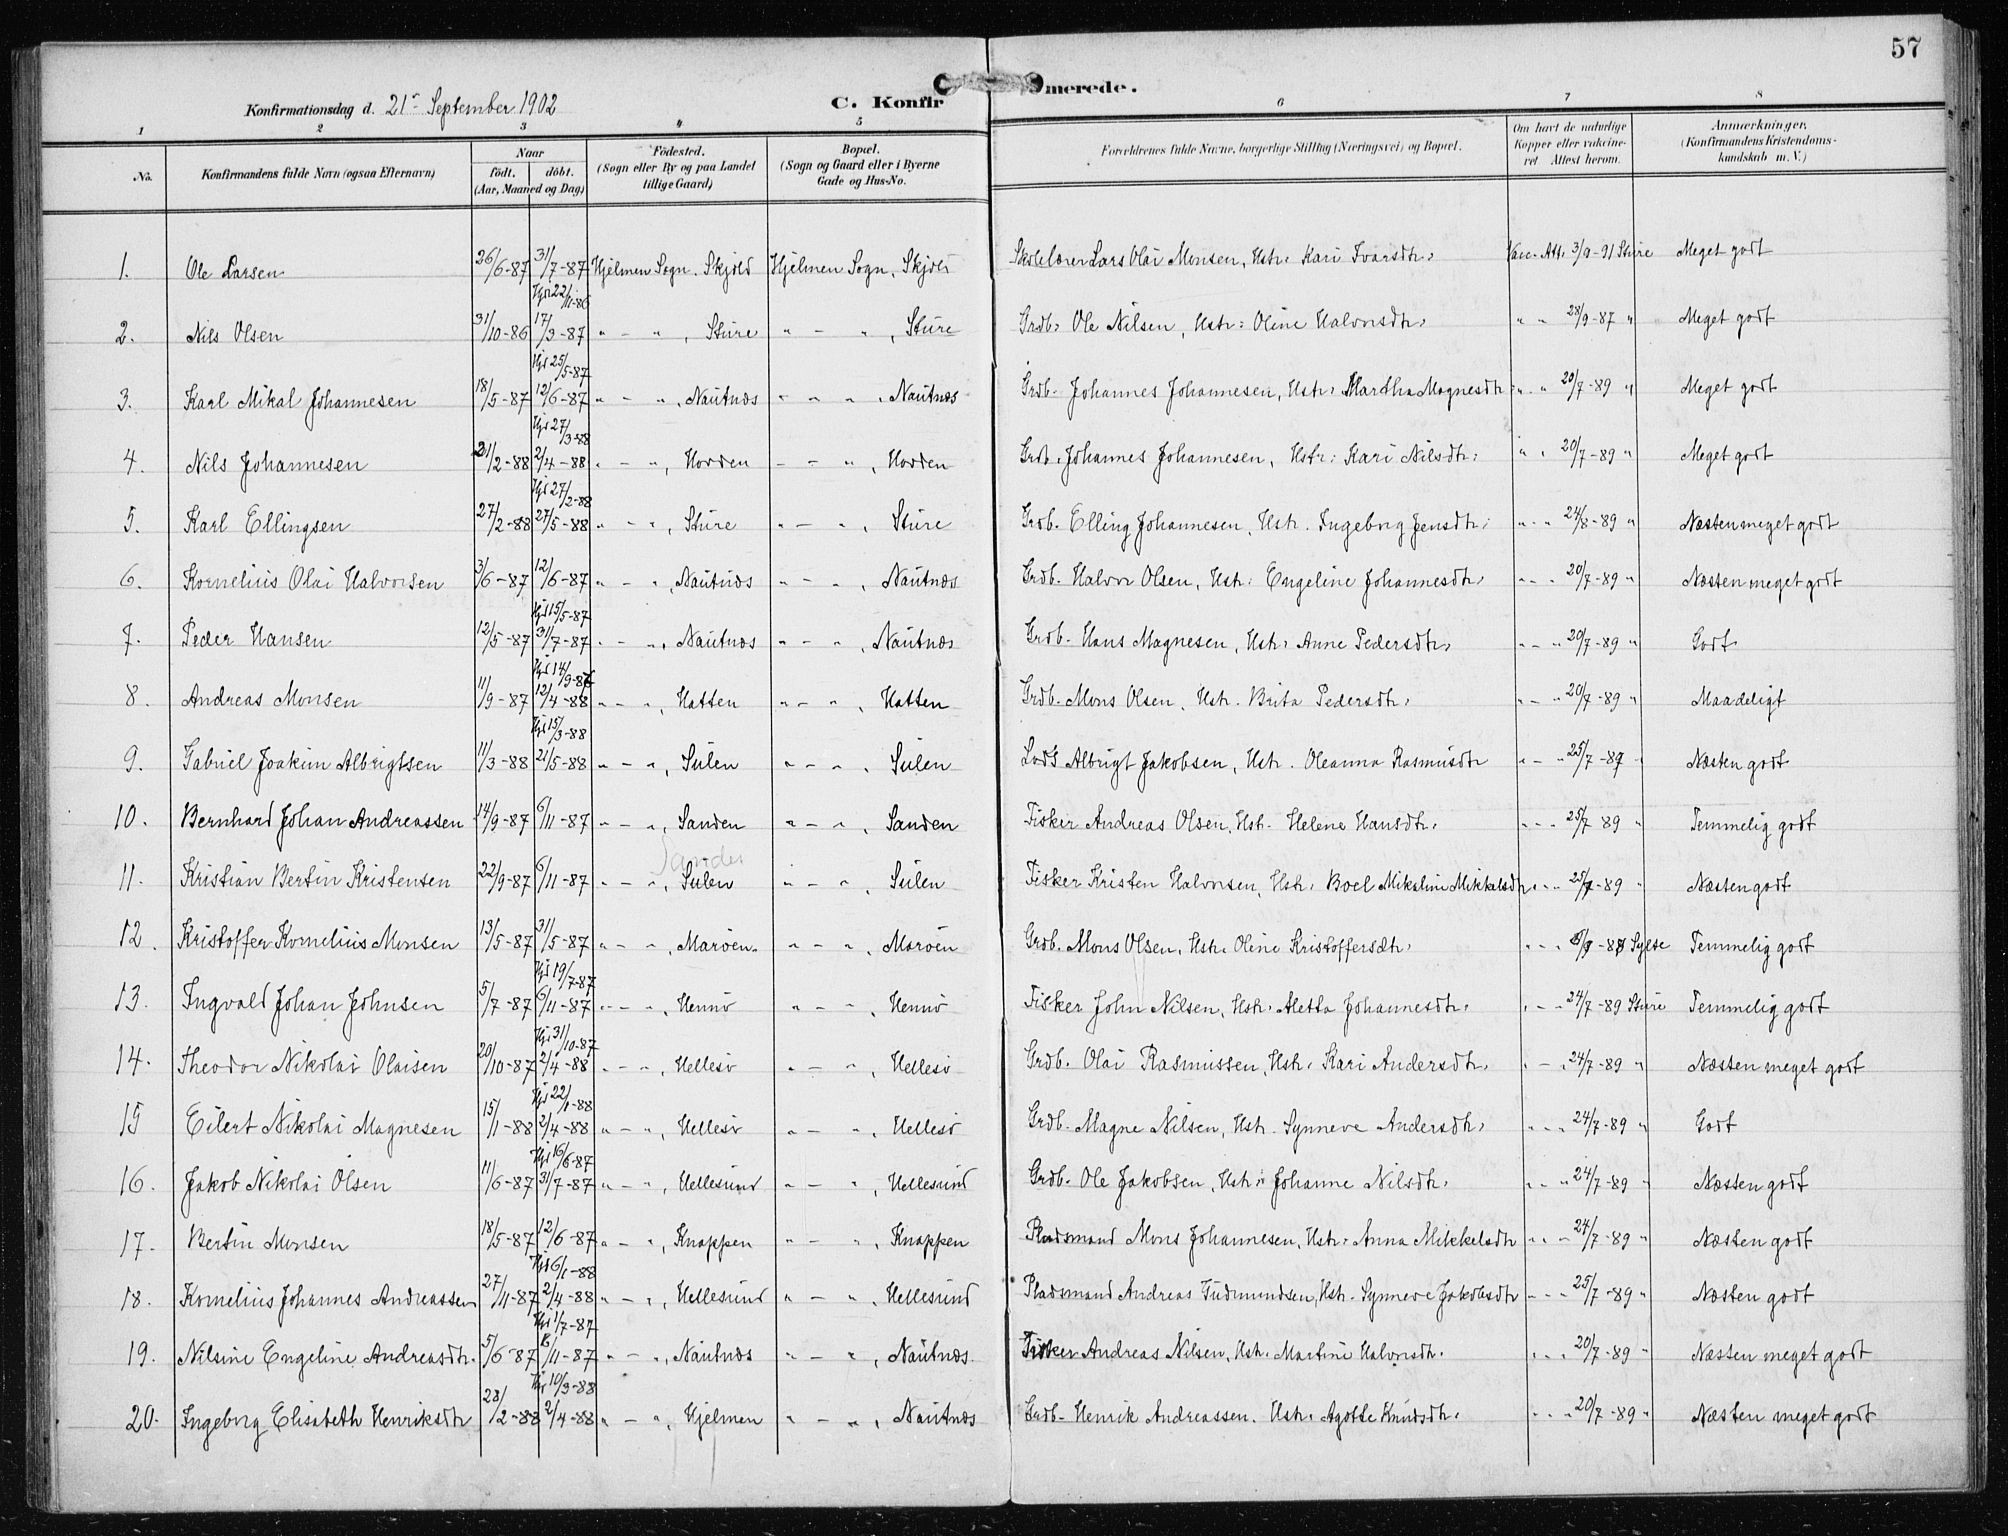 57
C. Konfirmerede.
Konfirmationsdag d. 21de September 1902
1 2 3 4 5 6 7 8
No. Konfirmandens fulde Navn (ogsaa Efternavn) Naar født. døbt. (Aar, Maaned og Dag) Fødested. (Sogn eller By og paa Landet tillige Gaard) Bopæl. (Sogn og Gaard eller i Byerne Gade og Hus-No. Forældrenes fulde Navne, borgerlige Stilling (Næringsvei) og Bopæl. Om havt de naturlige Kopper eller vaccineret Attest herom. Anmærkninger. (Konfirmandens Kristendomskundskab m. V.)
1. Ole Larsen 26/6-87 31/7-87 Hjelmen Sogn. Skjold Hjelmen Sogn, Skjold Skolelærer Lars Olai Monsen, Hstr. Kari Ivarsdtr. Vac. Att. 3/9-91 Sture Meget godt
2. Nils Olsen 31/10-86 Hjd 22/11-86 17/3-87 " - " , Sture " - " , Sture Grdb. Ole Nilsen, Hstr: Oline Halvorsdtr. " " 28/9-87 " Meget godt
3. Karl Mikal Johannesen 18/5-87 Hjd 25/5-87 12/6-87 " - " , Nautnæs " - " , Nautnæs Grdb. Johannes Johannesen, Hstr. Martha Magnesdtr. " " 20/7-89 " Meget godt
4. Nils Johannesen 21/2-88 Hjd 27/3-88 2/4-88 " - " , Horden " - " , Horden Grdb. Johannes Johannesen, Hstr: Kari Nilsdtr: " " 20/7-89 " Meget godt
5. Karl Ellingsen 27/2-88 Hjd 27/2-88 27/5-88 " - " , Sture " - " , Sture Grdb. Elling Johannesen, Hstr. Ingeborg Jensdtr. " - " 24/8-89 " Næsten meget godt
6. Kornelius Olai Halvorsen 3/6-87 12/6-87 " - " , Nautnæs " - " , Nautnæs Grdb. Halvor Olsen, Hstr: Engeline Johannesdtr. " - " 20/7-89 " Næsten meget godt
7. Peder Hansen 12/5-87 Hjd 15/5-87 31/7-87 " - " , Nautnæs " - " , Nautnæs Grdb. Hans Magnesen, Hstr. Anne Pedersdtr. " - " 20/7-89 " Godt
8. Andreas Monsen 11/9-87 Hjd 14/9-86 12/4-88 " - " , Hatten " - " , Hatten Grdb. Mons Olsen, Hstr. Brita Pedersdtr. " - " 20/7-89 " Maadeligt
9. Gabriel Joakim Albrigtsen 11/3-88 Hjd 15/3-88 21/5-88 " - " , Sulen " - " , Sulen Lods Albrigt Jakobsen, Hstr. Oleanna Rasmusdtr " - " 25/7-87 " Næsten godt
10. Bernhard Johan Andreassen 14/9-87 6/11-87 " - " , Sanden " - " , Sanden Fisker Andreas Olsen, Hstr. Helene Hansdtr. " - " 25/7 89 " Temmelig godt
11. Kristian Bertin Kristensen 22/9-87 6/11-87 " - " , Sulen " - " , Sulen Fisker Kristen Halvorsen, Hstr. Boel Mikaline Mikkelsdtr. " - " 25/7-89 " Næsten godt
12. Kristoffer Kornelius Monsen 13/5-87 31/5-87 " - " , Marøen. " - " , Marøen Grdb. Mons Olsen, Hstr. Oline Kristoffersdtr. " - " Temmelig godt
13. Ingvald Johan Johnsen 5/7-87 Hjd 19/7-87 6/11-87 " - " , Hennø " - " , Hennø Fisker John Nilsen, Hstr. Aletta Johannesdtr. " - " 24/7-89 Sture Temmelig godt
14. Theodor Nikolai Olaisen 20/10-87 Hjd 31/10-87 2/4-88 " - " , Hellesø " - " , Hellesø Grdb. Olai Rasmussen, Hstr. Kari Andersdtr. " - " 24/7-89 " Næsten meget godt
15 Eilert Nikolai Magnesen 15/1-88 Hjd 22/1-88 2/4-88 " - " , Hellesø " - " , Hellesø Grdb. Magne Nilsen, Hstr. Synneve Andersdtr. " - " 24/7-89 " Godt
16. Jakob Nikolai Olsen 11/6-87 Hjd 16/6-87 31/7-87 " - " , Hellesund " - " , Hellesund Grdb. Ole Jakobsen, Hstr: Johanne Nilsdtr. " - " 24/7-89 " Næsten godt
17. Bertin Monsen 18/5-87 12/6-87 " - " , Knappen " - " , Knappen Pladsmand Mons Johannesen, Hstr. Anna Mikkelsdtr " - " 24/7-89 " Næsten godt
18. Kornelius Johannes Andreassen 27/11-87 Hjd 6/1-88 2/4-88 " - " , Hellesund " - " , Hellesund Pladsmand Andreas Gudmundsen, Hstr. Synneve Jakobsdtr " - " 25/7-89 " Næsten godt
19. Nilsine Engeline Andreasdtr. 5/6-87 Hjd 1/7-87 6/11-87 " - " , Nautnæs " - " , Nautnæs. Fisker Andreas Nilsen, Hstr. Martine Halvorsdtr. " - " 20/7-89 " Næsten meget godt
20. Ingeborg Elisabeth Henriksdtr 28/2-88 Hjd 10/3-88 2/4-88 " - " , Hjelmen " - " , Nautnæs Grdb. Henrik Andreassen. Hstr. Agothe Knudsdtr. " - " 20/7-89 " Næsten meget godt